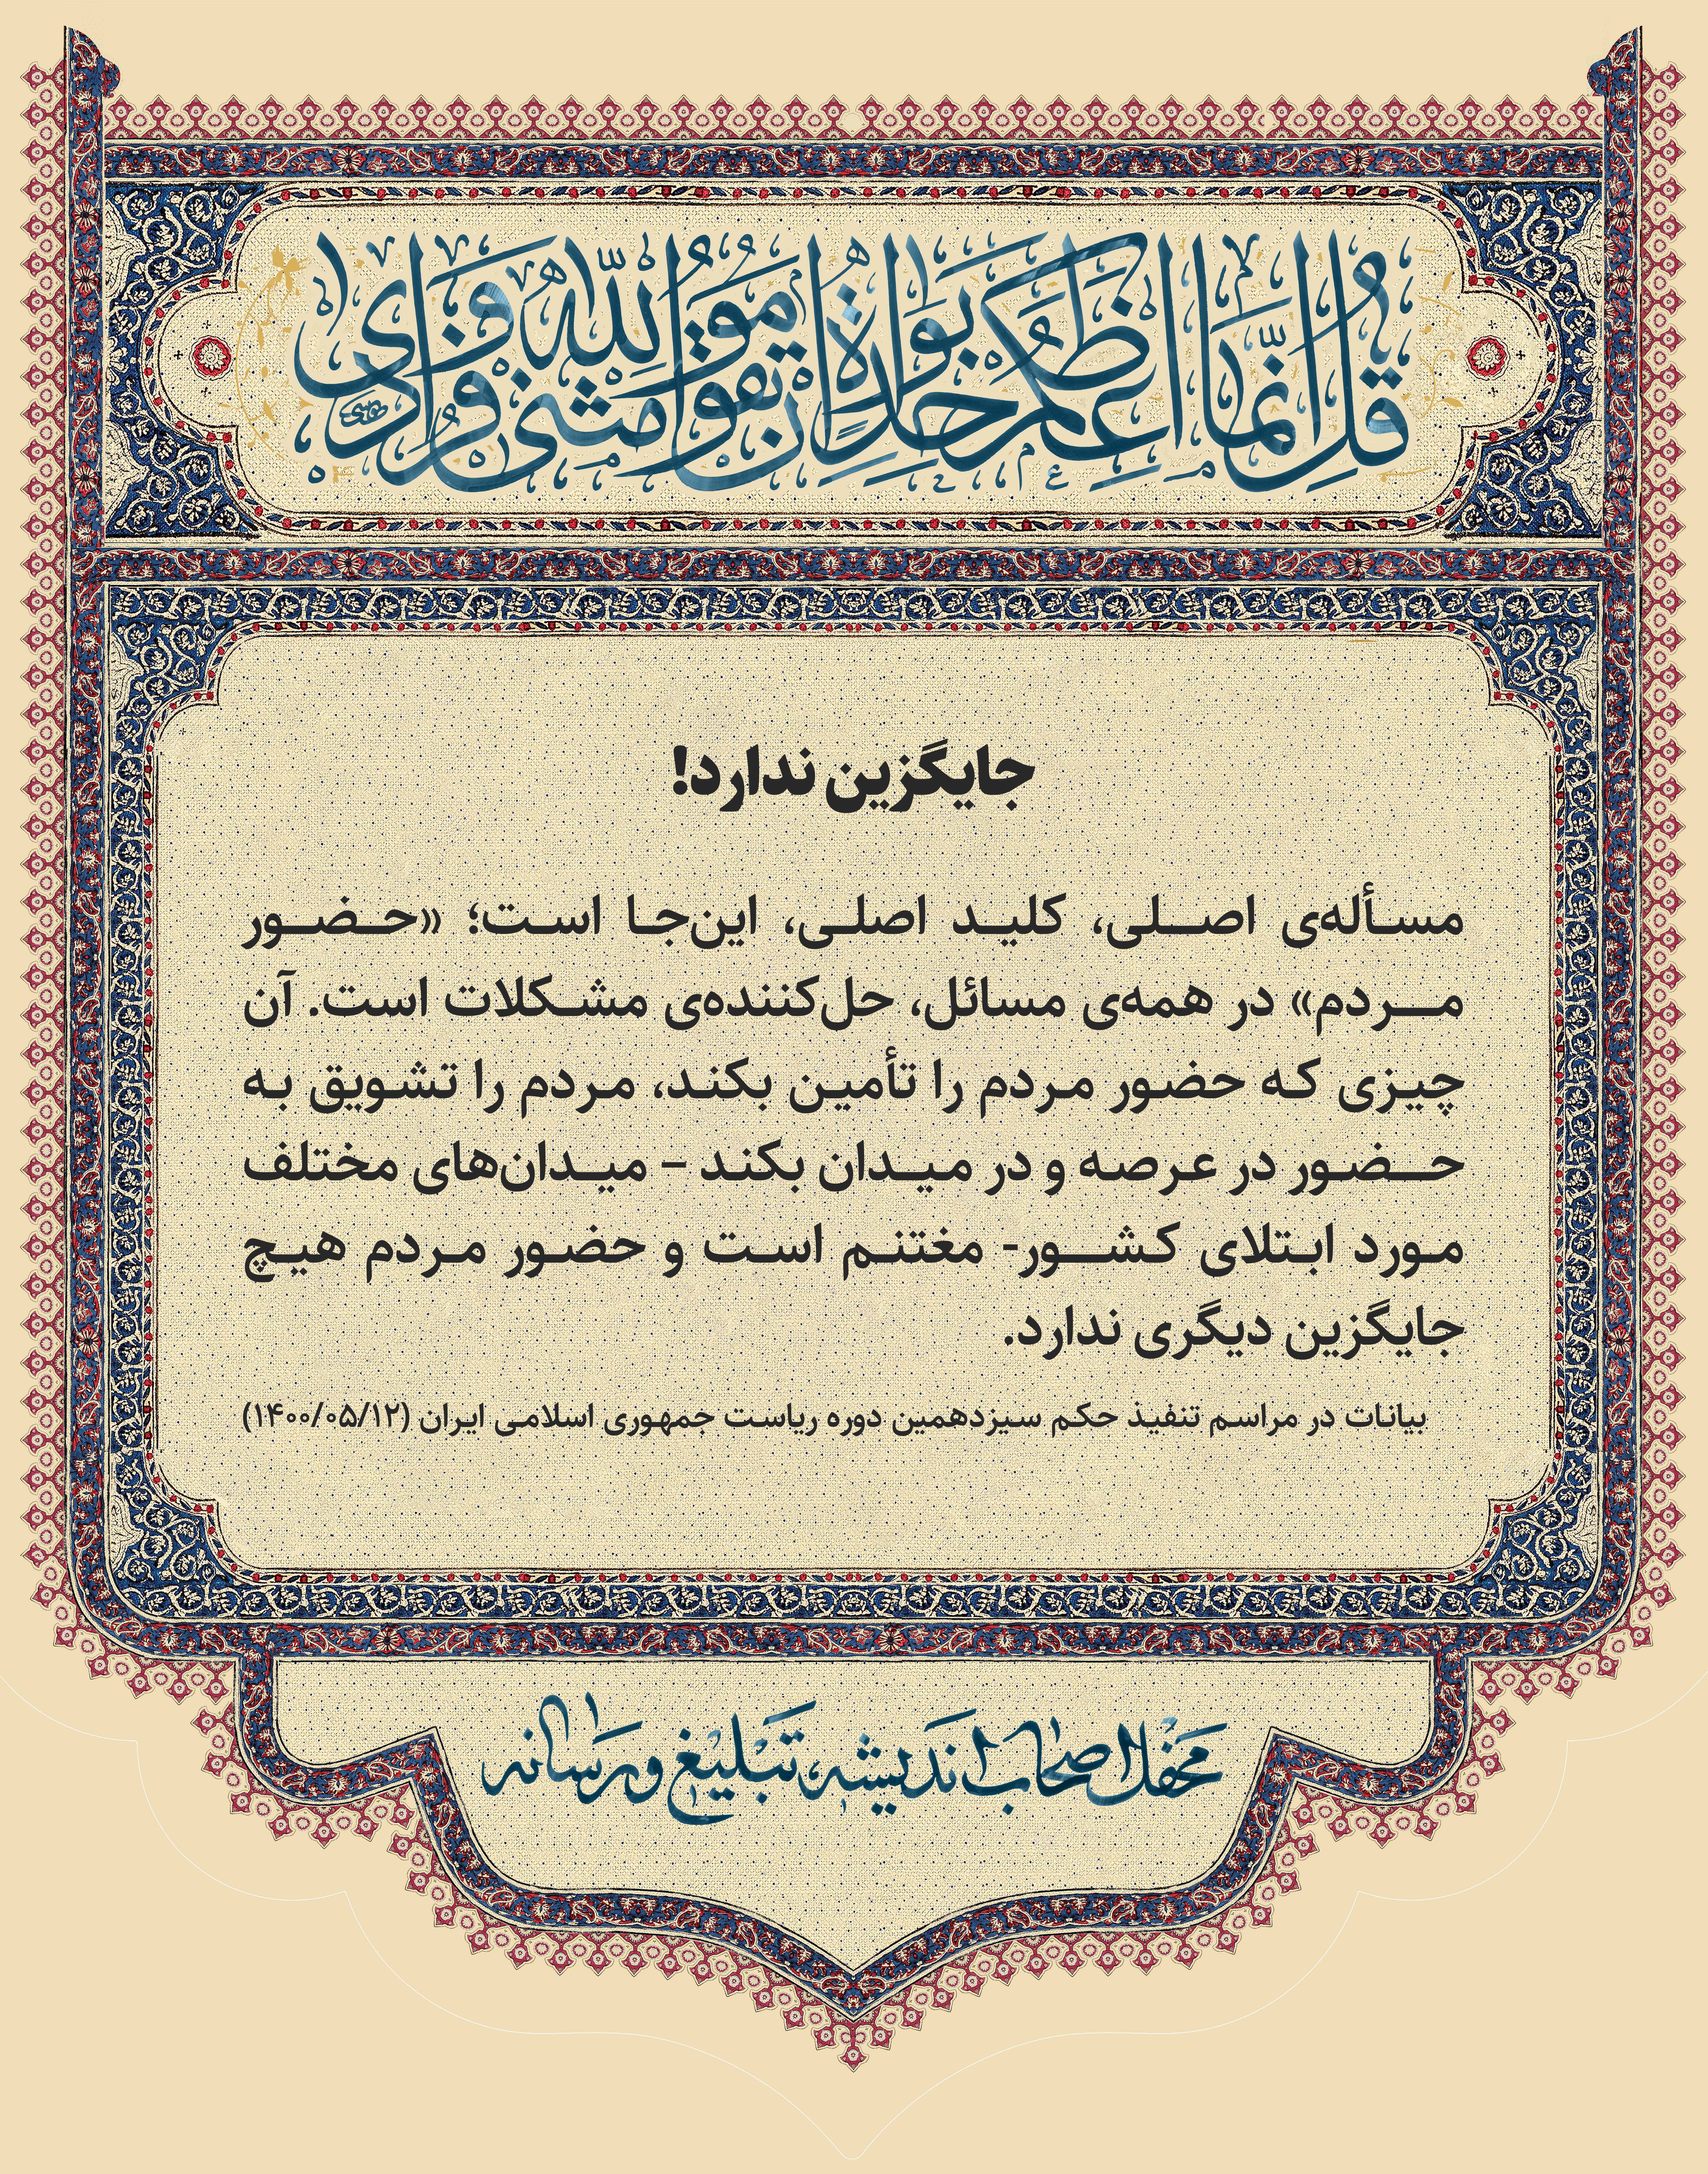 قُل اِنَّما اَعِظُكُم بِواحِدَةٍ اَن تَقوموا لِلّٰهِ مَثنىٰ وَ فُرادىٰ
جایگزین ندارد!
مسأله‌ی اصلی، کلید اصلی، این‌جا است؛ «حضور
مردم» در همه‌ی مسائل، حل‌کننده‌ی مشکلات است. آن
چیزی که حضور مردم را تأمین بکند، مردم را تشویق به
حضور در عرصه و در میدان بکند – میدان‌های مختلف
مورد ابتلای کشور- مغتنم است و حضور مردم هیچ
جایگزین دیگری ندارد.
بیانات در مراسم تنفیذ حکم سیزدهمین دوره ریاست جمهوری اسلامی ایران (۱۴۰۰/۰۵/۱۲)
محفل اصحاب اندیشه، تبلیغ و رسانه